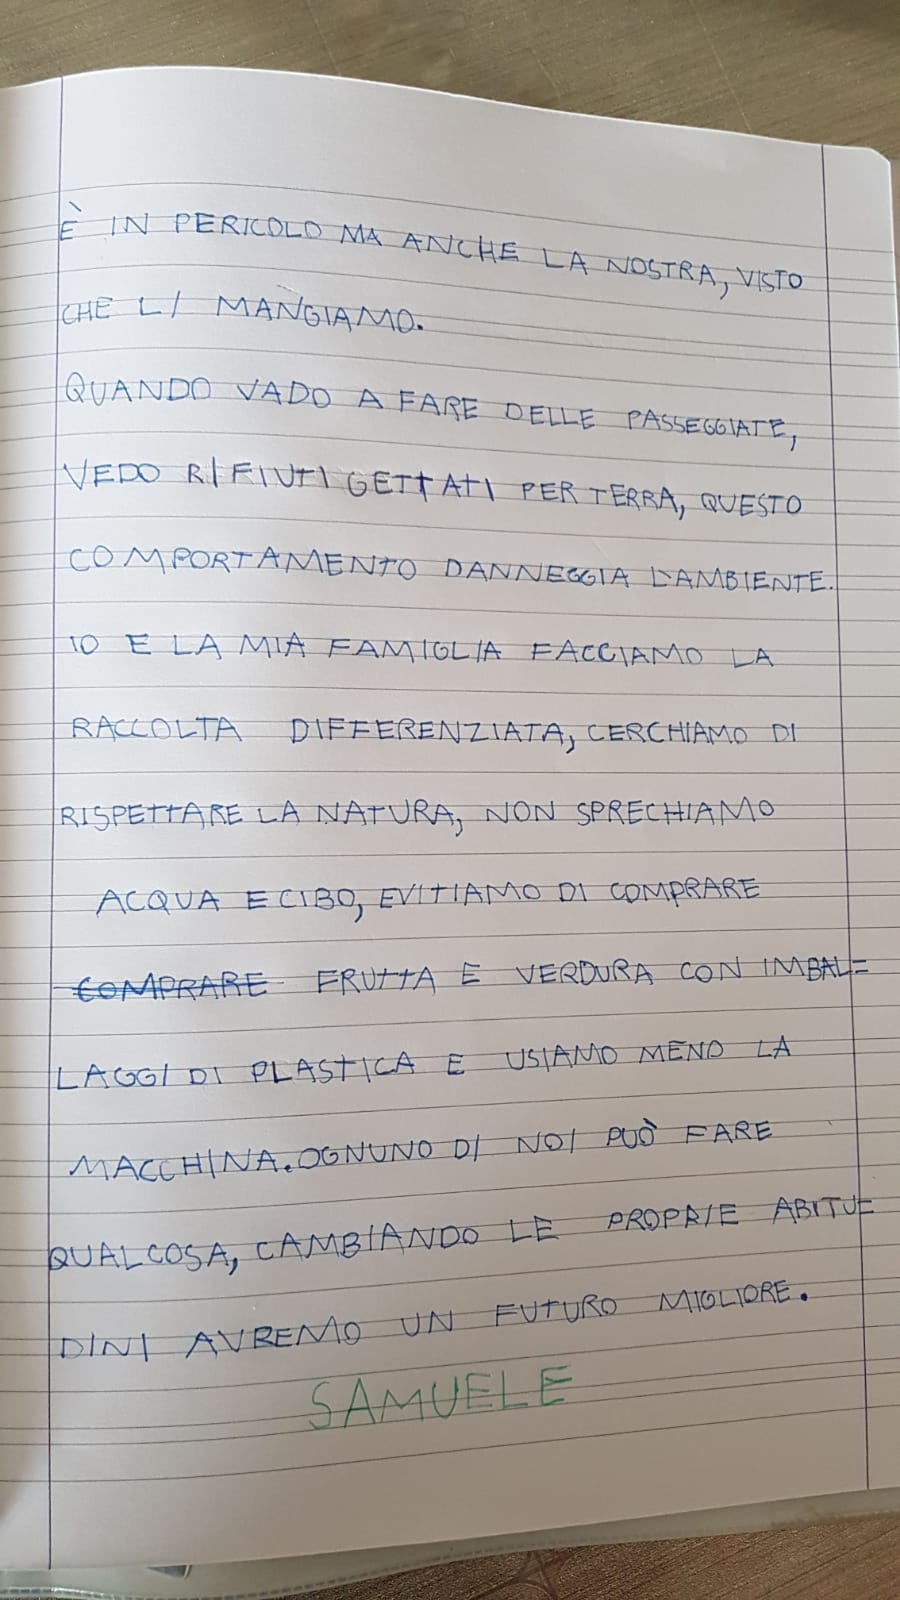 È IN PERICOLO MA ANCHE LA NOSTRA, VISTO
CHE LI MANGIAMO.
QUANDO VADO A FARE DELLE PASSEGGIATE,
VEDO RIFIUTI GETTATI PER TERRA, QUESTO
COMPORTAMENTO DANNEGGIA L'AMBIENTE.
IO E LA MIA FAMIGLIA FACCIAMO LA
RACCOLTA DIFFERENZIATA, CERCHIAMO DI
RISPETTARE LA NATURA, NON SPRECHIAMO
ACQUA E CIBO, EVITIAMO DI COMPRARE
COMPRARE FRUTTA E VERDURA CON IMBAL=
LAGGI DI PLASTICA E USIAMO MENO LA
MACCHINA. OGNUNO DI NOI PUÒ FARE
QUALCOSA, CAMBIANDO LE PROPRIE ABITUE
DINI AVREMO UN FUTURO MIGLIORE.
SAMUELE